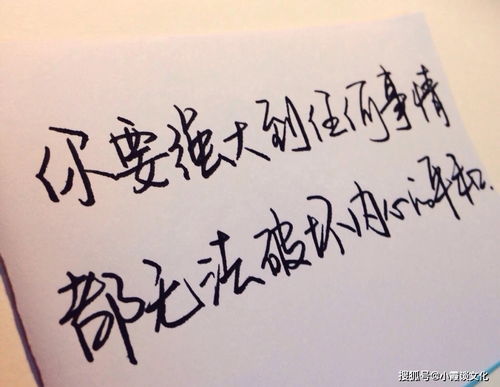 你要强大到任何事情
都无法破坏内心的平和.
搜狐号@小霞谈文化